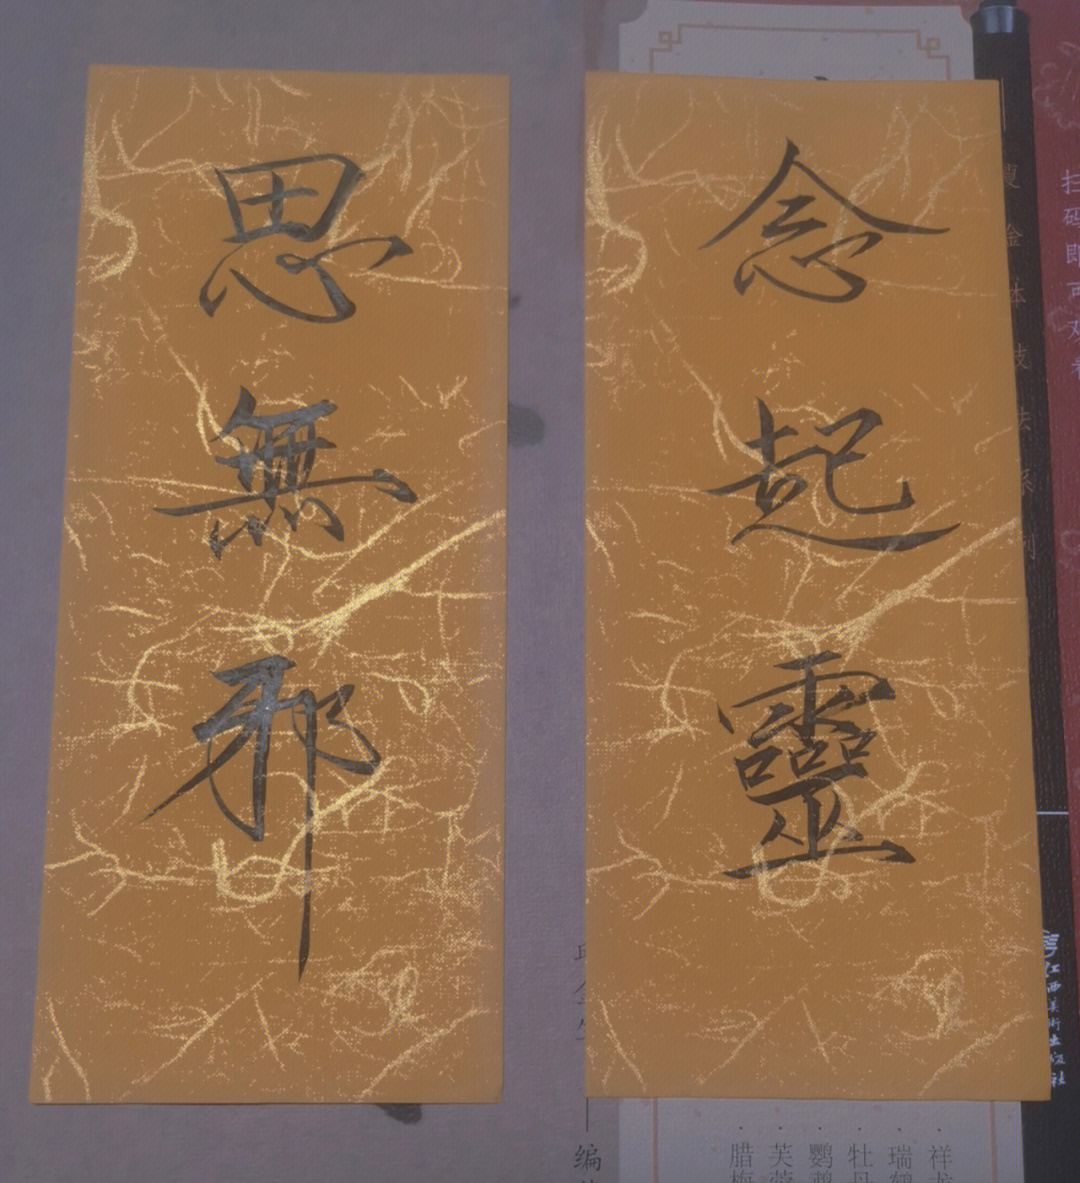 念起靈
思無邪
瘦金体技法系列
江西美术出版社
扫码即可观看
编